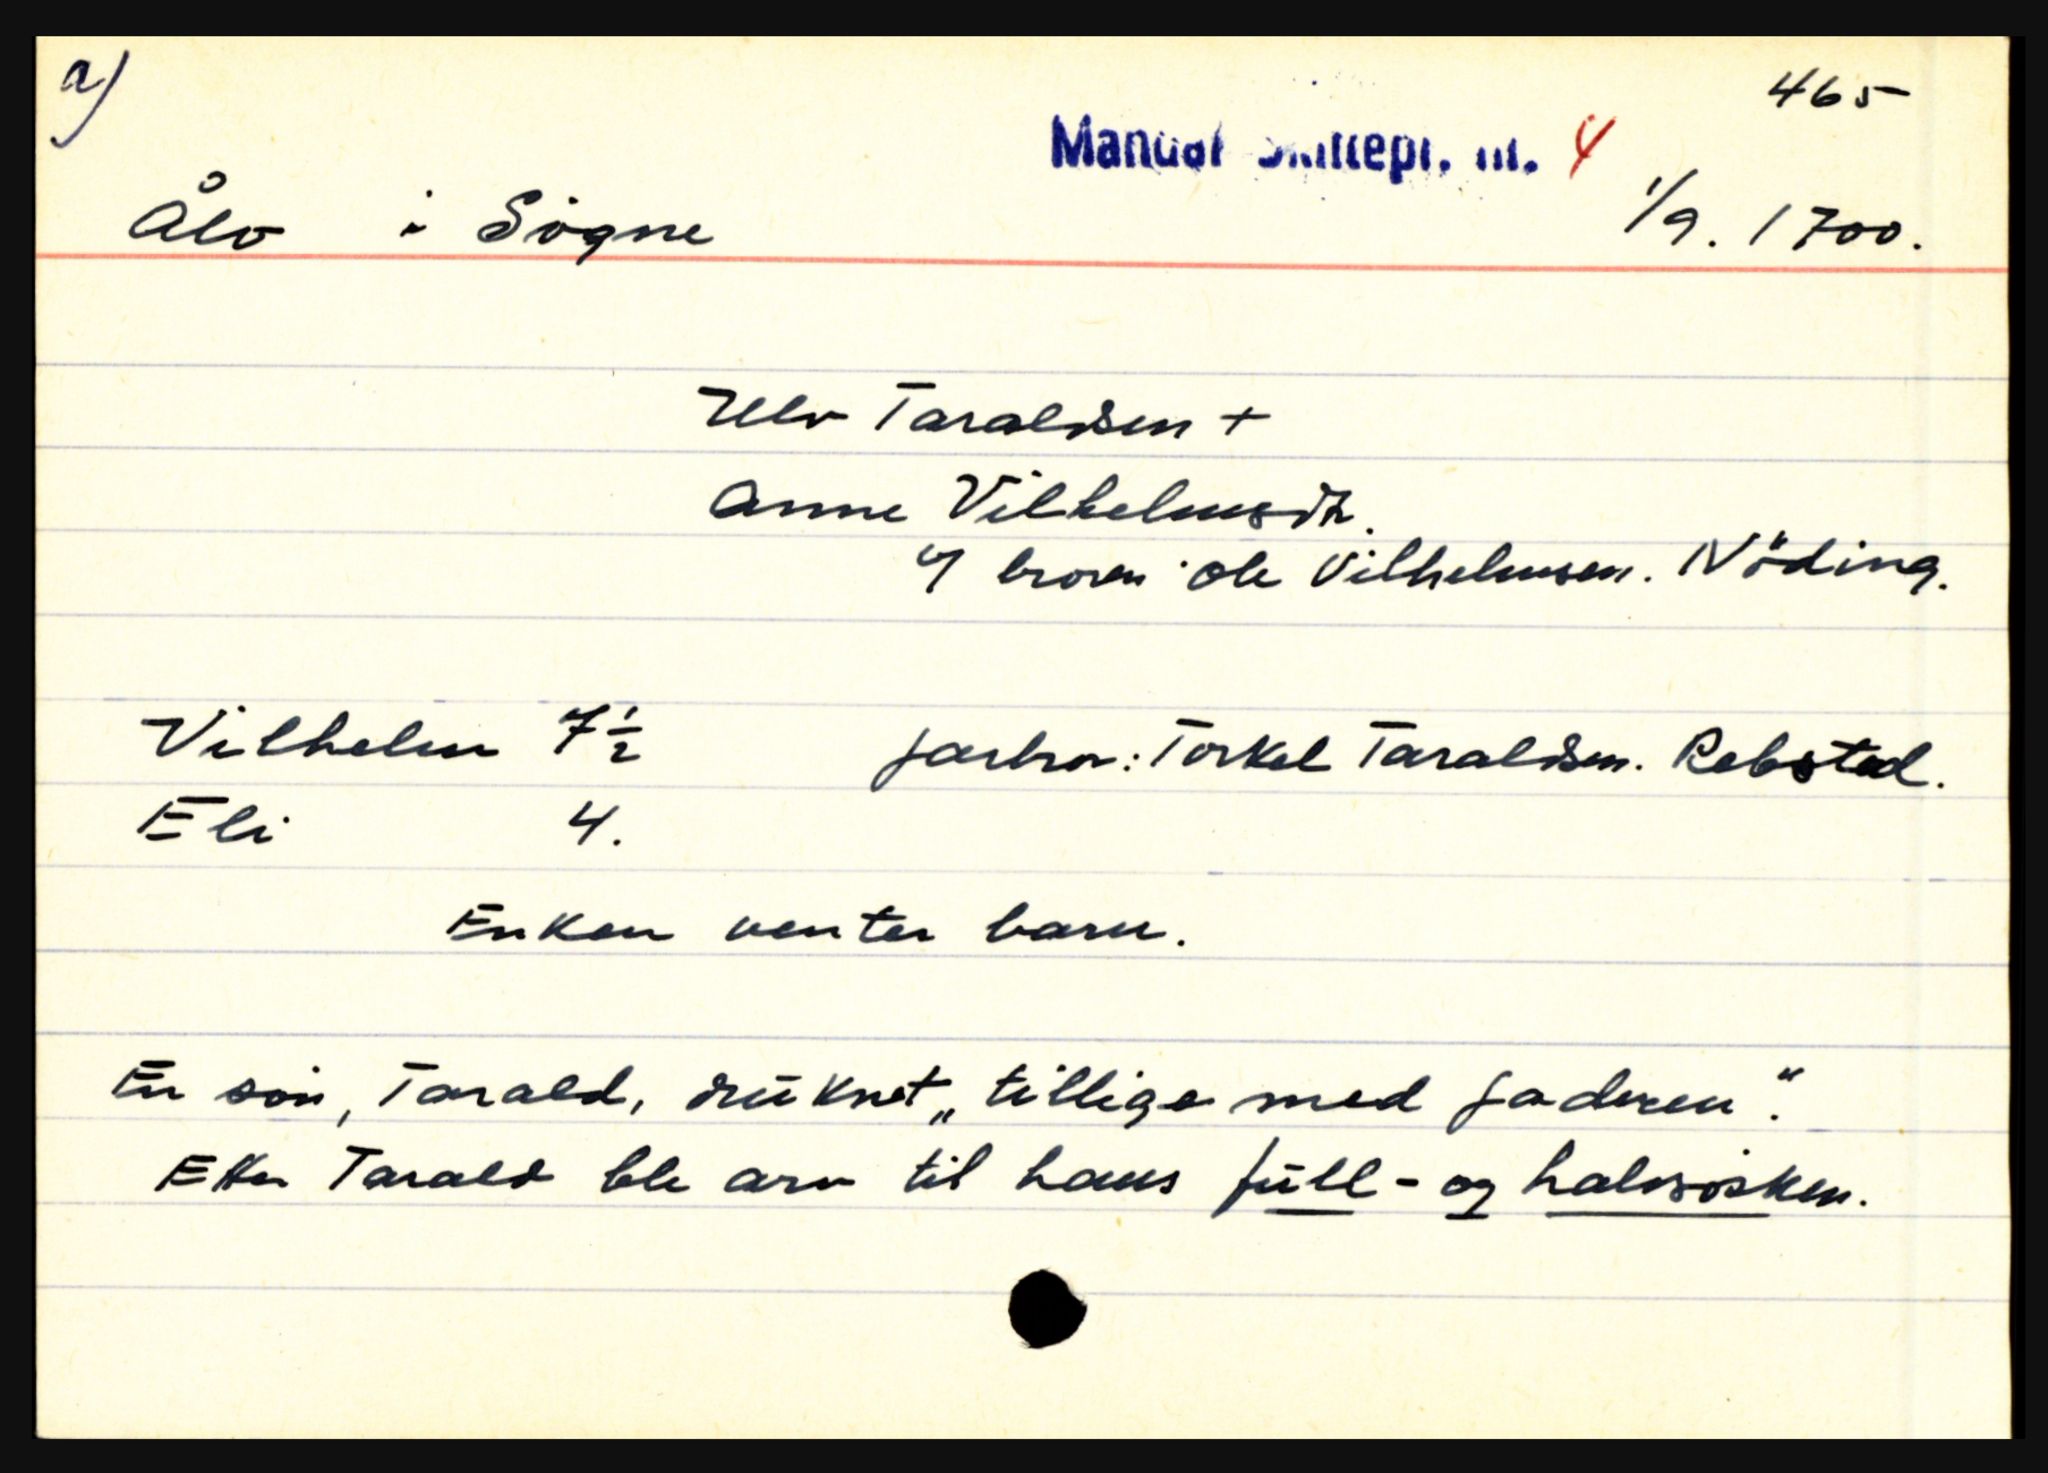 a)
465
Mandal Skiftepr. nr. 4
Ålo i Sögne 1/9. 1700.
Ulv Taraldsen +
Anne Vilhelmsdtr.
v/ broren Ole Vilhelmsen. Nöding.
Vilhelm 7½ farbror: Torkel Taraldsen. Rebstad.
Eli 4.
Enken venter barn.
En sön, Tarald, druknet „tillige med faderen“.
Etter Tarald ble arv til hans full- og halvsösken.